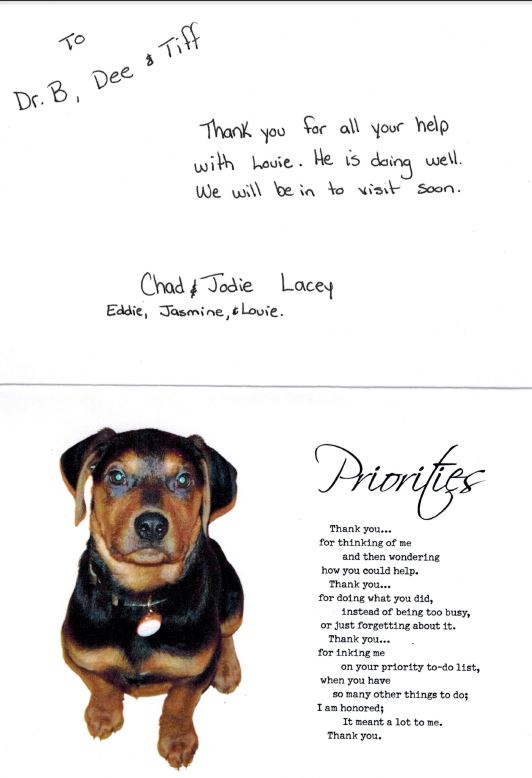 To
Dr. B, Dee & Tiff
Thank you for all your help
with Louie. He is doing well.
We will be in to visit soon.
Chad & Jodie Lacey
Eddie, Jasmine, & Louie.
Priorities
Thank you...
for thinking of me
and then wondering
how you could help.
Thank you...
for doing what you did,
instead of being too busy,
or just forgetting about it.
Thank you...
for inking me
on your priority to-do list,
when you have
so many other things to do;
I am honored;
It meant a lot to me.
Thank you.